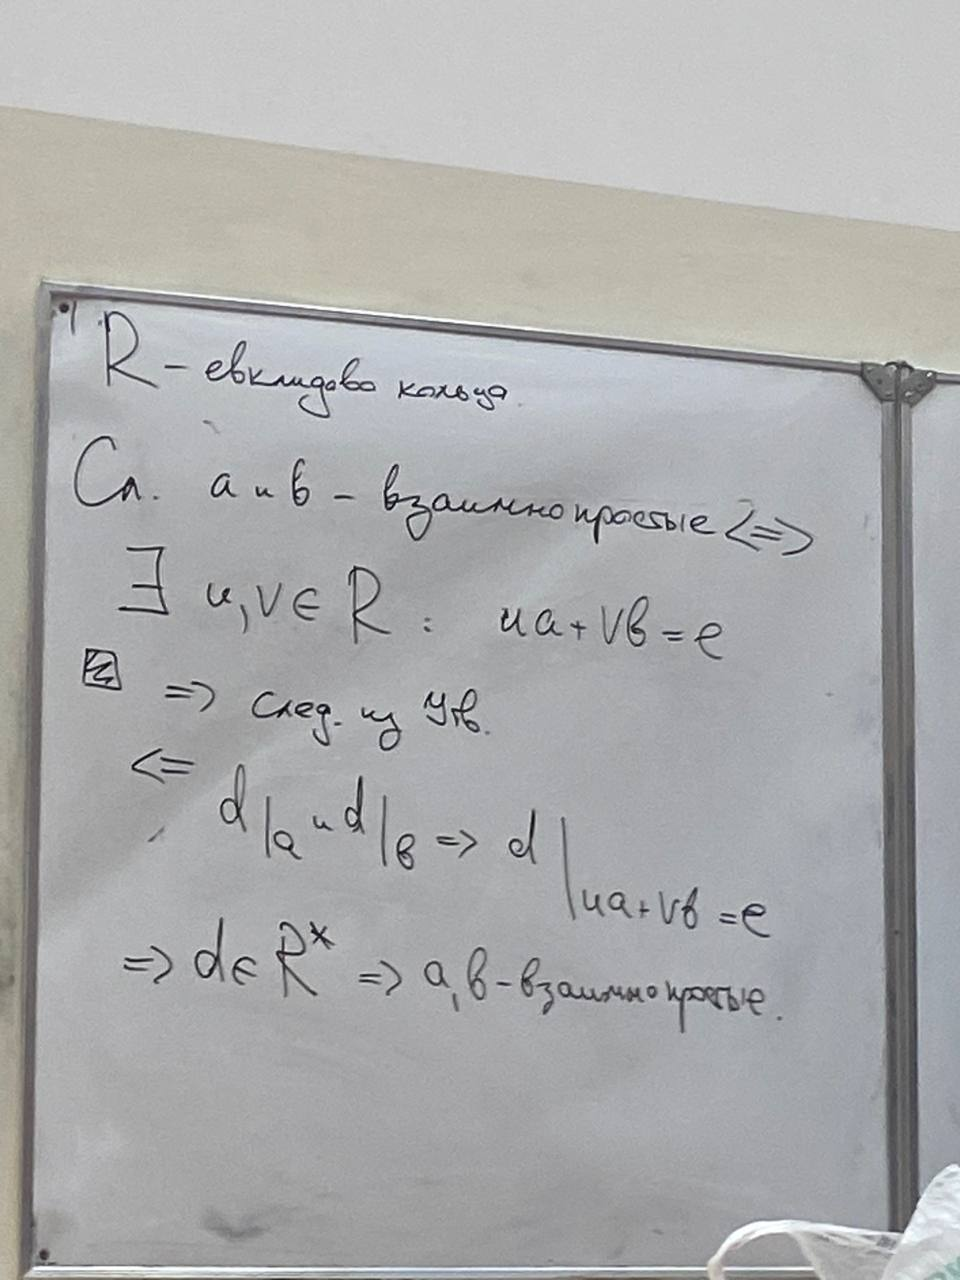 R – евклидово кольцо.
Сл. a и b – взаимно простые <=>
∃ u, v ∈ R : ua + vb = e
=> след. из Утв.
<= d | a и d | b => d | ua + vb = e
=> d ∈ R* => a, b – взаимно простые.